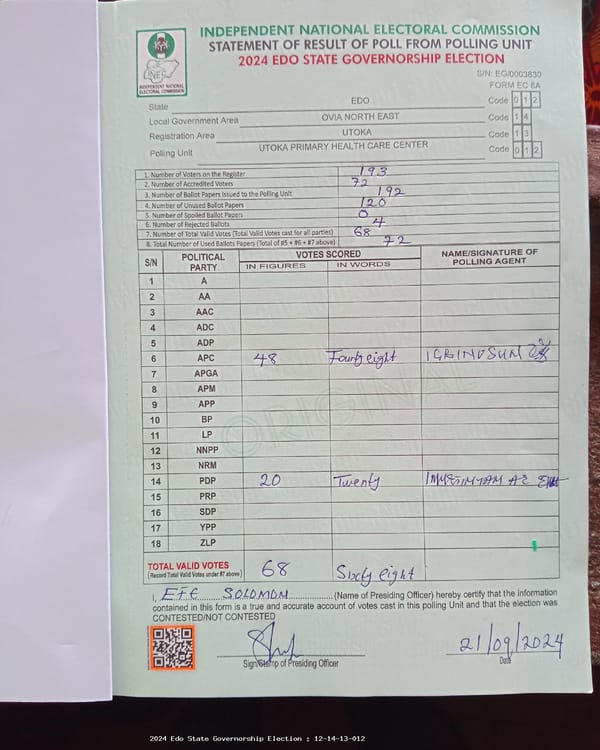 INDEPENDENT NATIONAL ELECTORAL COMMISSION
STATEMENT OF RESULT OF POLL FROM POLLING UNIT
2024 EDO STATE GOVERNORSHIP ELECTION
INEC
INDEPENDENT NATIONAL ELECTORAL COMMISSION
S/N: EG/0003830
FORM EC 8A
State EDO Code 0 1 2
Local Government Area OVIA NORTH EAST Code 1 4
Registration Area UTOKA Code 1 3
Polling Unit UTOKA PRIMARY HEALTH CARE CENTER Code 0 1 2
1. Number of Voters on the Register 193
2. Number of Accredited Voters 72
3. Number of Ballot Papers Issued to the Polling Unit 192
4. Number of Unused Ballot Papers 120
5. Number of Spoiled Ballot Papers 0
6. Number of Rejected Ballots 4
7. Number of Total Valid Votes (Total Valid Votes cast for all parties) 68
8. Total Number of Used Ballots Papers (Total of #5 + #6 + #7 above) 72
S/N POLITICAL PARTY VOTES SCORED NAME/SIGNATURE OF POLLING AGENT
IN FIGURES IN WORDS
1 A
2 AA
3 AAC
4 ADC
5 ADP
6 APC 48 Fourty eight
7 APGA
8 APM
9 APP
10 BP
11 LP
12 NNPP
13 NRM
14 PDP 20 Twenty
15 PRP
16 SDP
17 YPP
18 ZLP
ORIGINAL
TOTAL VALID VOTES 68 Sixty eight
(Record Total Valid Votes under #7 above)
I, EFE SOLOMON (Name of Presiding Officer) hereby certify that the information
contained in this form is a true and accurate account of votes cast in this polling Unit and that the election was
CONTESTED/NOT CONTESTED
21/09/2024
Sign/Stamp of Presiding Officer Date
2024 Edo State Governorship Election : 12-14-13-012